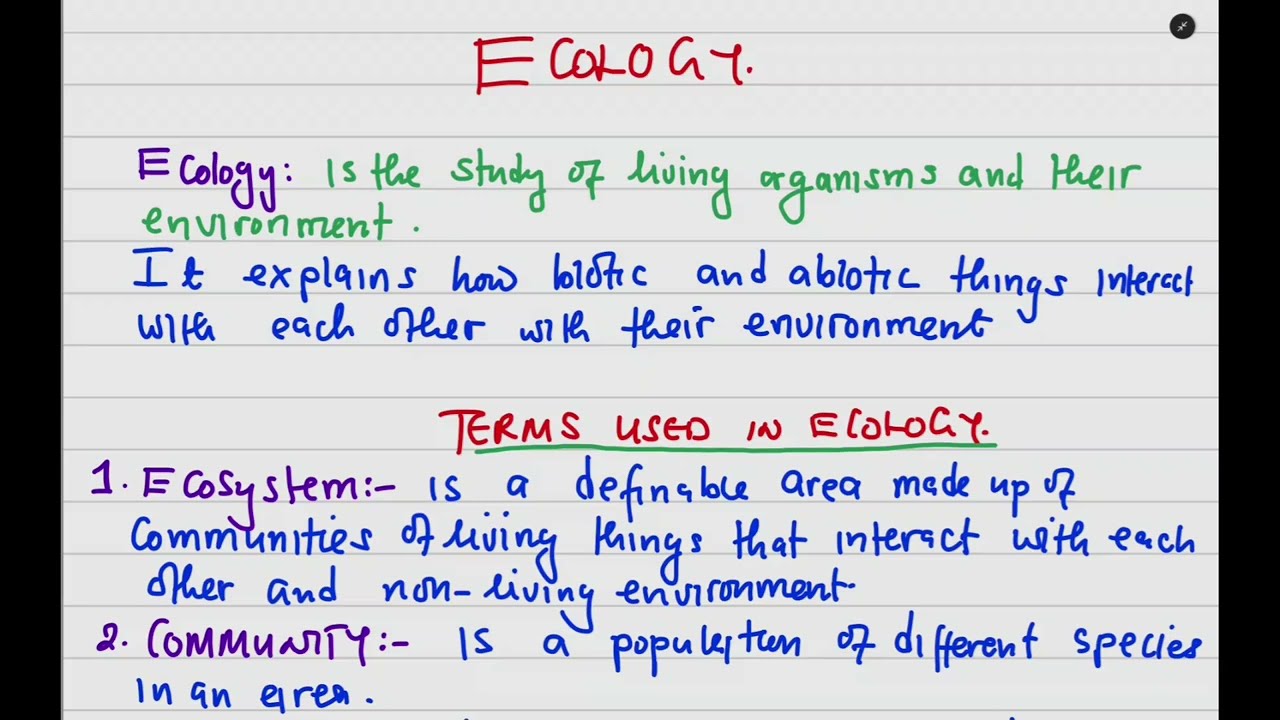 ECOLOGY.
Ecology: is the study of living organisms and their
environment.
It explains how biotic and abiotic things interact
with each other with their environment
TERMS USED IN ECOLOGY.
1. Ecosystem:- is a definable area made up of
Communities of living things that interact with each
other and non-living environment.
2. COMMUNITY:- is a population of different species
in an area.